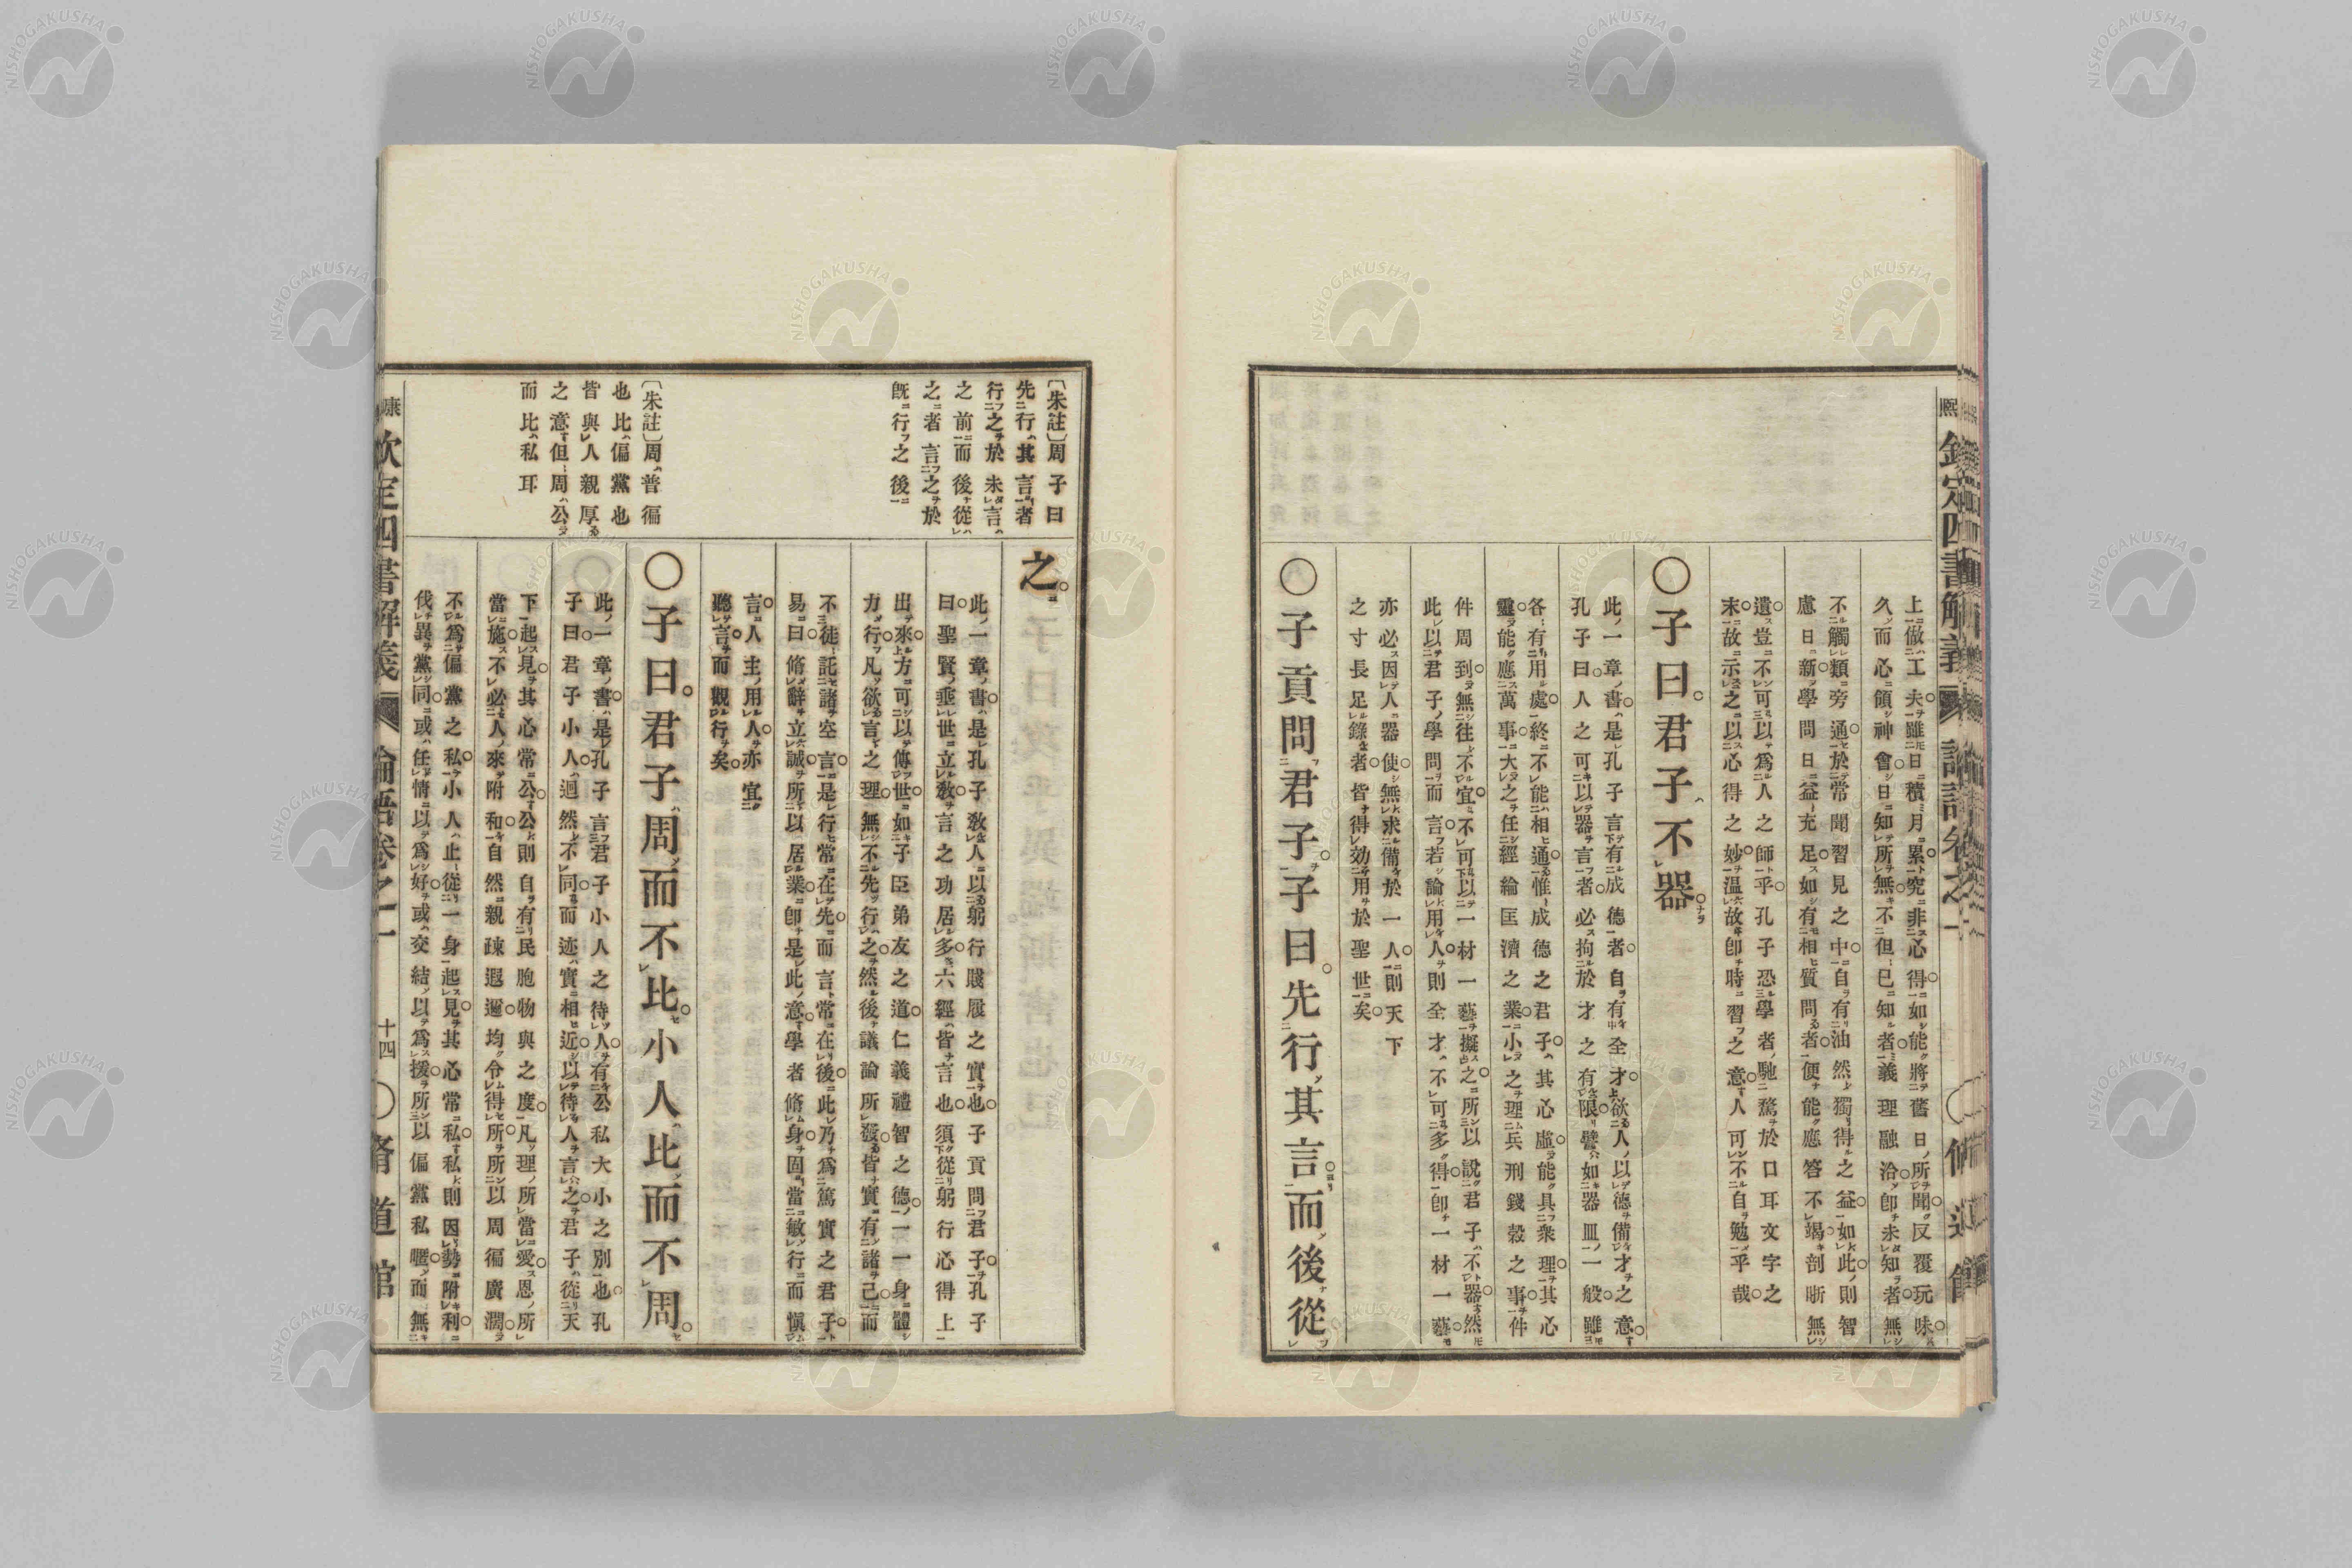 上做工夫雖日積月累究非心得如能將舊日所聞反覆玩味
久而心領神會日知所無不但已知者義理融洽卽未知者無
不觸類旁通於常聞習見之中自有油然獨得之益如此則智
慮日新學問日益充足如有相質問者便能應答不竭剖晣無
遺豈不可以爲人之師乎孔子恐學者馳騖於口耳文字之
末故示之以心得之妙温故卽時習之意人可不自勉乎哉
〇子曰君子不器
此一章書是孔子言有成德者自有全才欲人以德備才之意
孔子曰人之可以器言者必拘於才之有限譬如器皿一般雖
各有用處終不能相通惟成德之君子其心虛能具衆理其心
靈能應萬事大之任經綸匡濟之業小之理兵刑錢穀之事件
件周到無往不宜不可以一材一藝擬之所以說君子不器然
此以君子學問而言若論用人則全才不可多得卽一材一藝
亦必因人器使無求備於一人則天下
之寸長足錄者皆得効用於聖世矣
〇子貢問君子子曰先行其言而後從
〔朱註〕周子曰
先行其言者
行之於未言
之前而後從
之者言之於
旣行之後
之
此一章書是孔子敎人以躬行踐履之實也子貢問君子孔子
曰聖賢垂世立敎言之功居多六經皆言也須從躬行心得上
出來方可以傳世如子臣弟友之道仁義禮智之德一一身體
力行凡欲言之理無不先行之然後議論所發皆實有諸己而
不徒託諸空言是行常在先而言常在後此乃爲篤實之君子
易曰脩辭立誠所以居業卽是此意學者脩身固當敏行而愼
言人主用人亦宜
聽言而觀行矣
〔朱註〕周普徧
也比偏黨也
皆與人親厚
之意但周公
而比私耳
〇子曰君子周而不比小人比而不周
此一章書是孔子言君子小人之待人有公私大小之別也孔
子曰君子小人迥然不同而迹實相近以待人言之君子從天
下起見其心常公公則自有民胞物與之度凡理所當愛恩所
當施不必人來附和自然親疎遐邇均令得所所以周徧廣濶
不爲偏黨之私小人止從一身起見其心常私私則因勢附利
伐異黨同或任情以爲好或交結以爲援所以偏黨私暱而無
十四